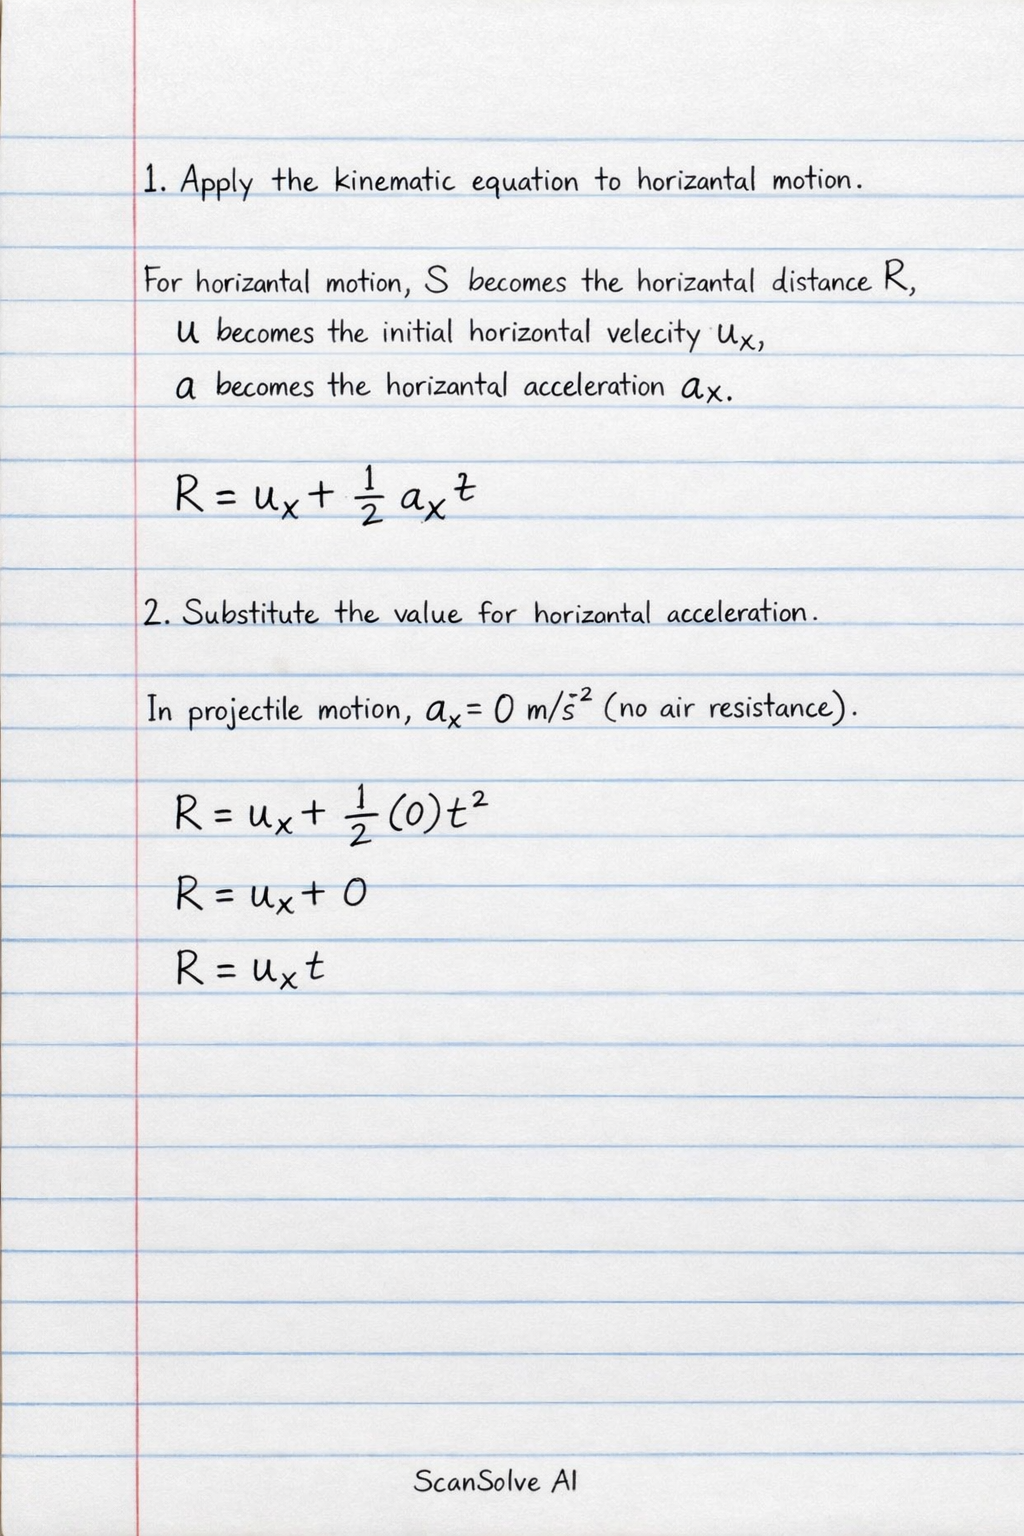 1. Apply the kinematic equation to horizantal motion.
For horizantal motion, S becomes the horizantal distance R,
u becomes the initial horizontal velecity uₓ,
a becomes the horizantal acceleration aₓ.
R = uₓ + 1/2 aₓ t
2. Substitute the value for horizantal acceleration.
In projectile motion, aₓ = 0 m/s⁻² (no air resistance).
R = uₓ + 1/2 (0)t²
R = uₓ + 0
R = uₓ t
ScanSolve AI